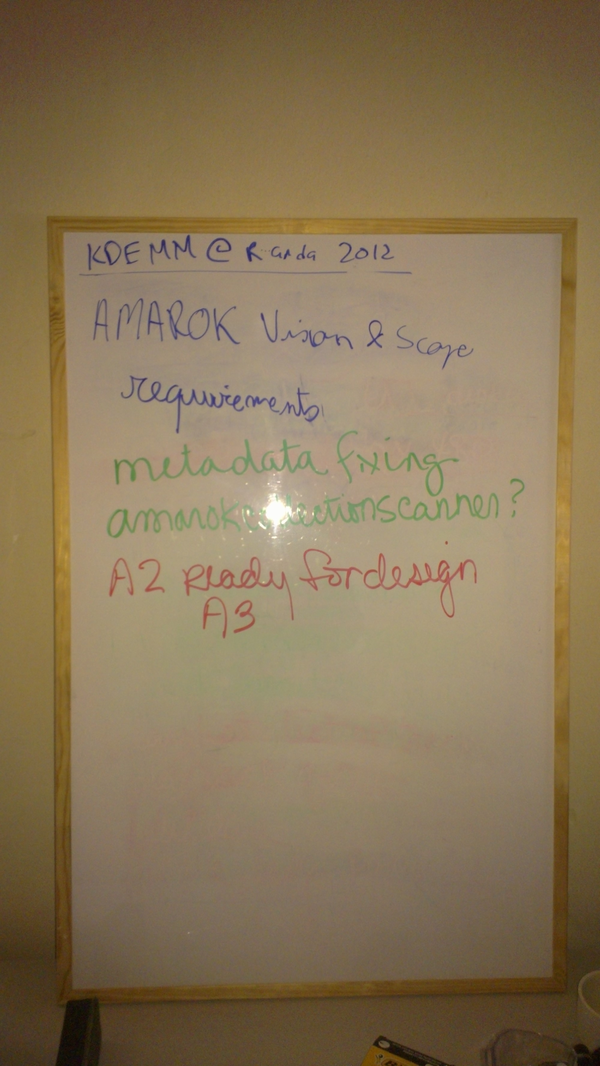 KDE MM @ Randa 2012
AMAROK Vision & Scope
requirements
metadata fixing
amarokcollectionscanner?
A2 ready for design
A3